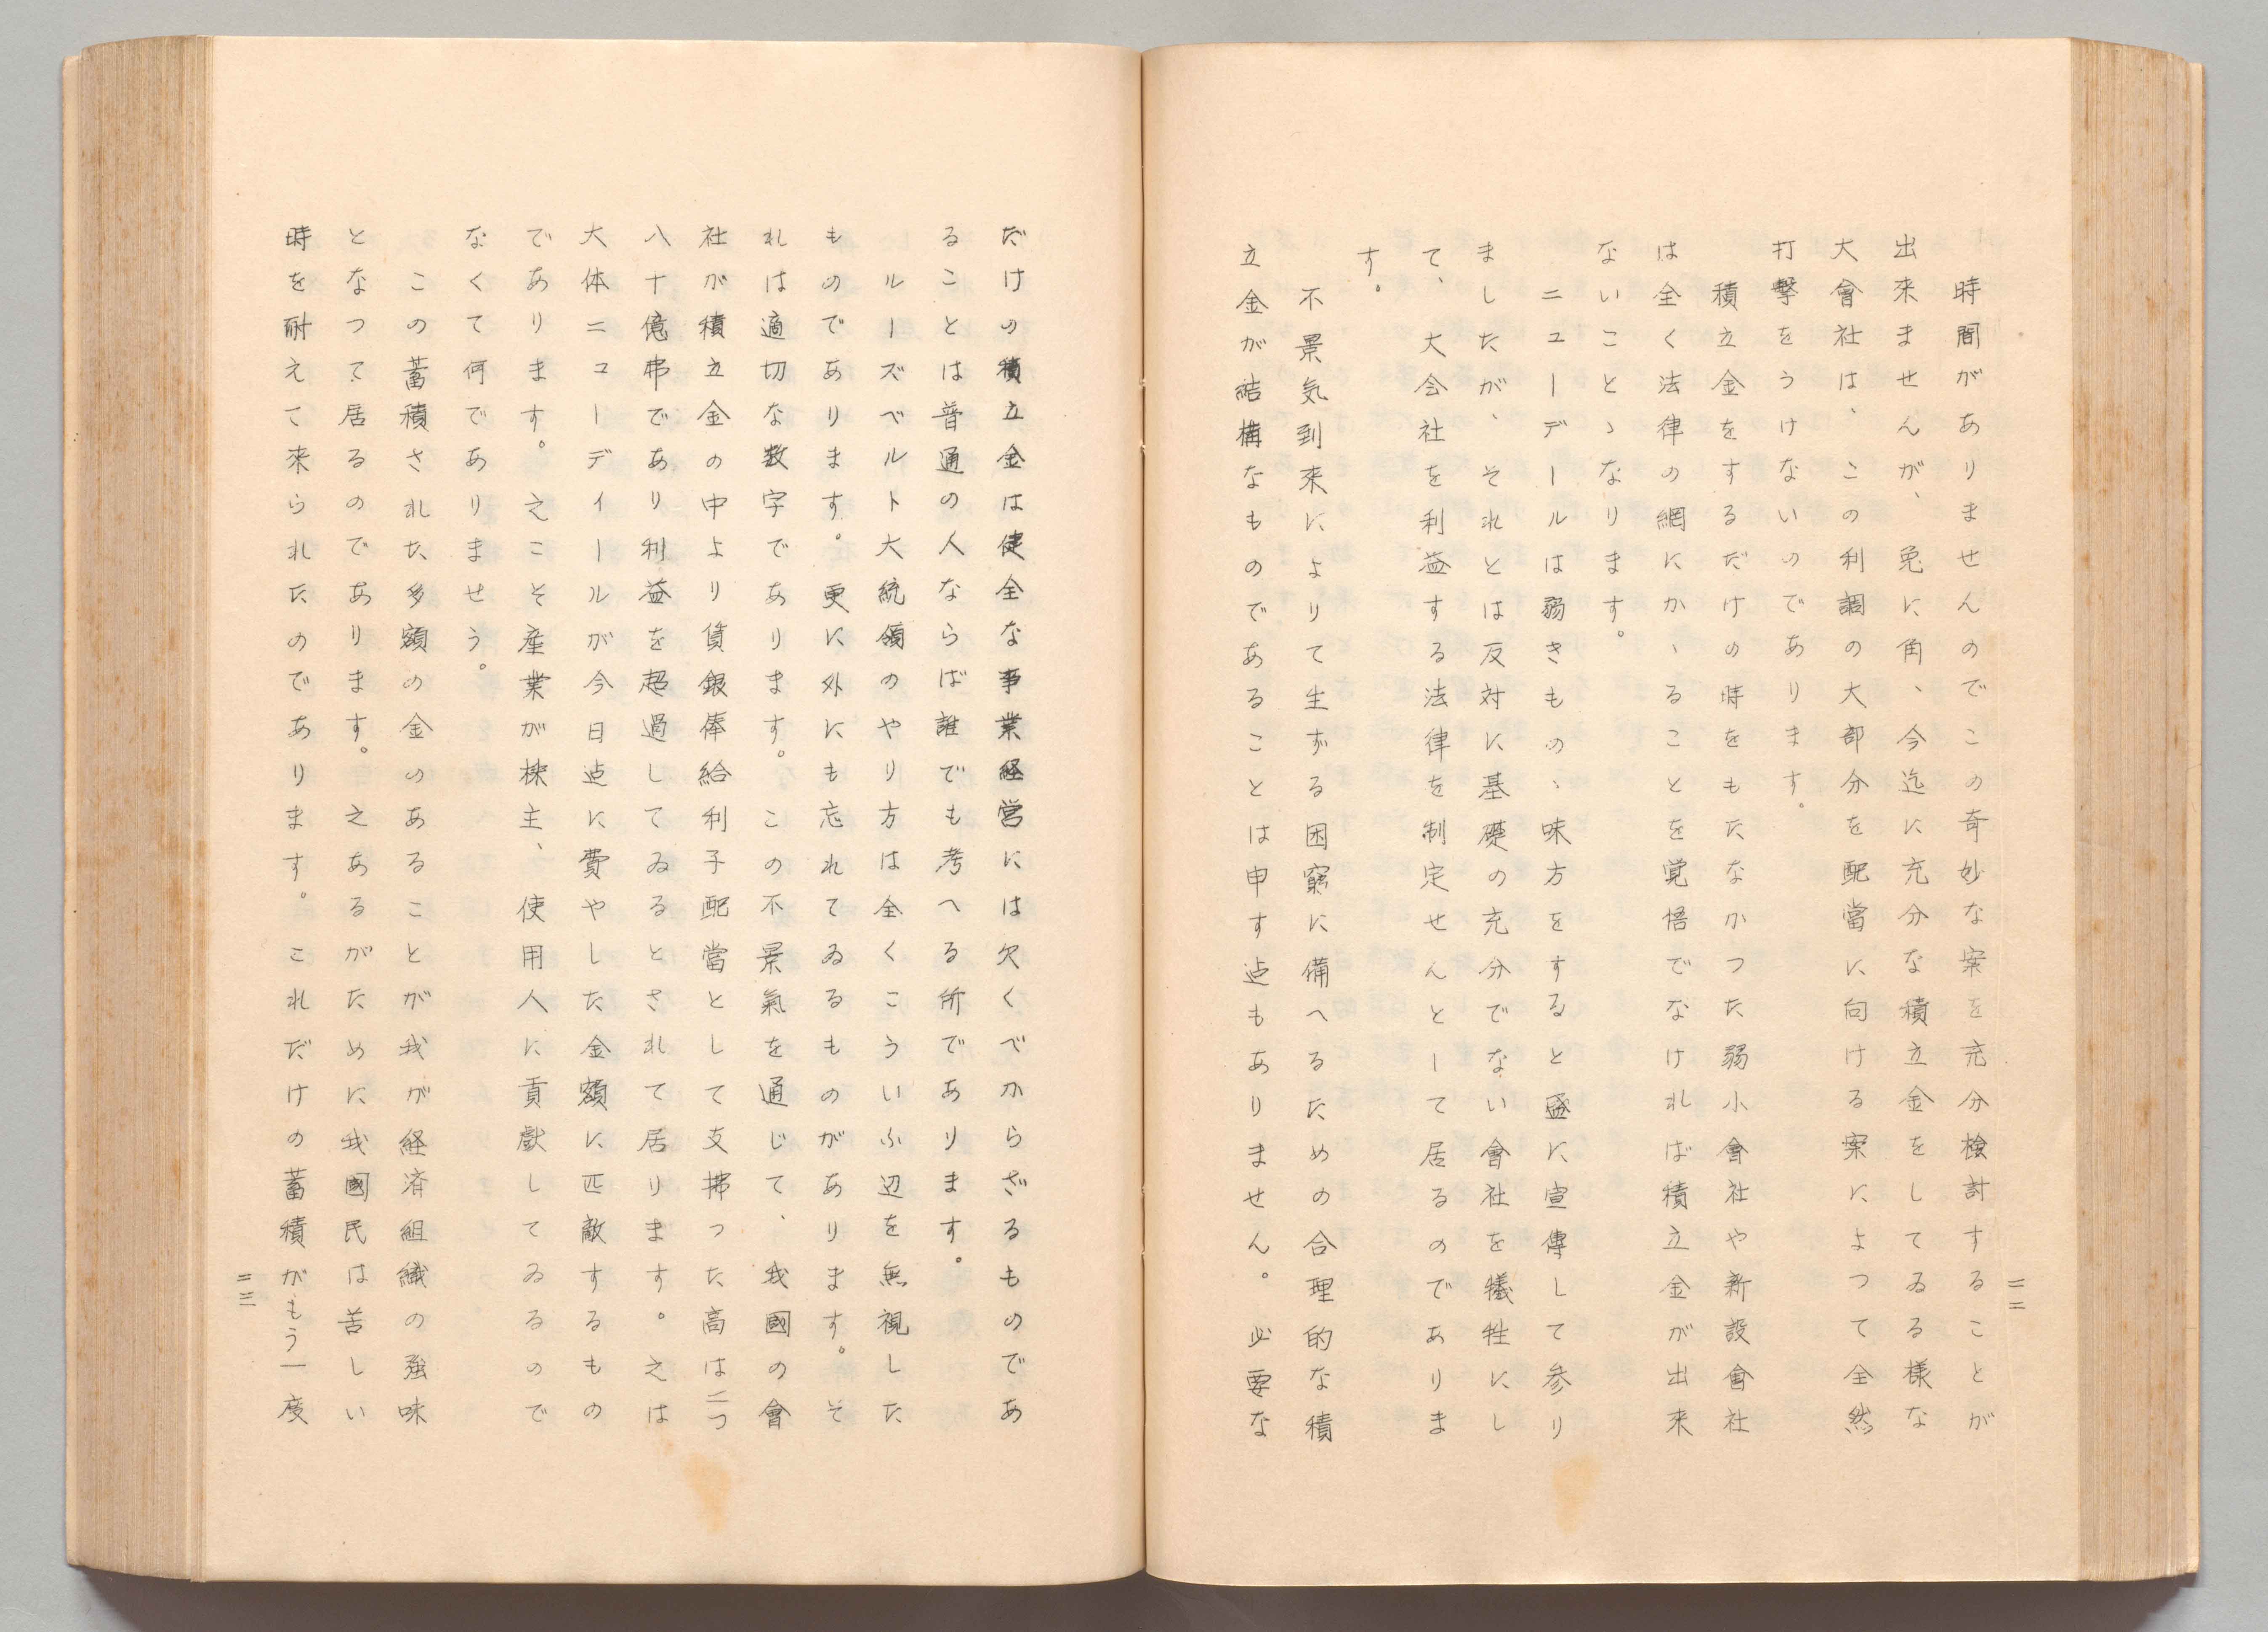 時間がありませんのでこの奇妙な案を充分検討することが
出来ませんが、兎に角、今迄に充分な積立金をしてゐる様な
大會社は、この利調の大部分を配當に向ける案によつて全然
打撃をうけないのであります。
積立金をするだけの時をもたなかつた弱小會社や新設會社
は全く法律の網にかゝることを覚悟でなければ積立金が出来
ないことゝなります。
ニューデールは弱きものゝ味方をすると盛に宣傳して参り
ましたが、それとは反対に基礎の充分でない會社を犠牲にし
て、大会社を利益する法律を制定せんとして居るのでありま
す。
不景気到来によりて生ずる困窮に備へるための合理的な積
立金が結構なものであることは申す迠もありません。必要な
二二
だけの積立金は健全な事業経営には欠くべからざるものであ
ることは普通の人ならば誰でも考へる所であります。
ルーズベルト大統領のやり方は全くこういふ辺を無視した
ものであります。更に外にも忘れてゐるものがあります。そ
れは適切な数字であります。この不景氣を通じて、我國の會
社が積立金の中より賃銀俸給利子配當として支拂つた高は二つ
八十億弗であり利益を超過してゐるとされて居ります。之は
大体ニューディールが今日迠に費やした金額に匹敵するもの
であります。之こそ産業が株主、使用人に貢獻してゐるので
なくて何でありませう。
この蓄積された多額の金のあることが我が経済組織の強味
となつて居るのであります。之あるがために我國民は苦しい
時を耐えて来られたのであります。これだけの蓄積がもう一度
二三